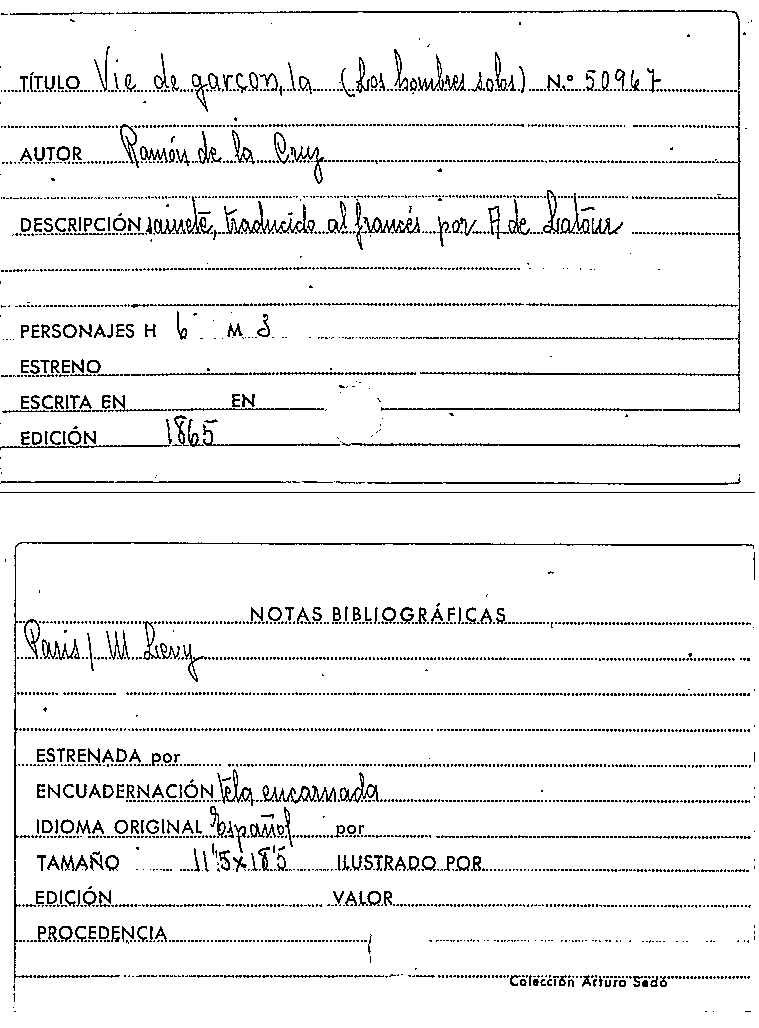 TÍTULO Vie de garçon, la (Los hombres solos) N.º 50967
AUTOR Ramón de la Cruz
DESCRIPCIÓN sainete, traducido al francés por A de Latour
PERSONAJES H 6 M 3
ESTRENO
ESCRITA EN EN
EDICIÓN 1865
NOTAS BIBLIOGRÁFICAS
Paris / M Levy
ESTRENADA por
ENCUADERNACIÓN tela encarnada
IDIOMA ORIGINAL Español por
TAMAÑO 11'5x18'5 ILUSTRADO POR
EDICIÓN VALOR
PROCEDENCIA
Colección Arturo Sedó